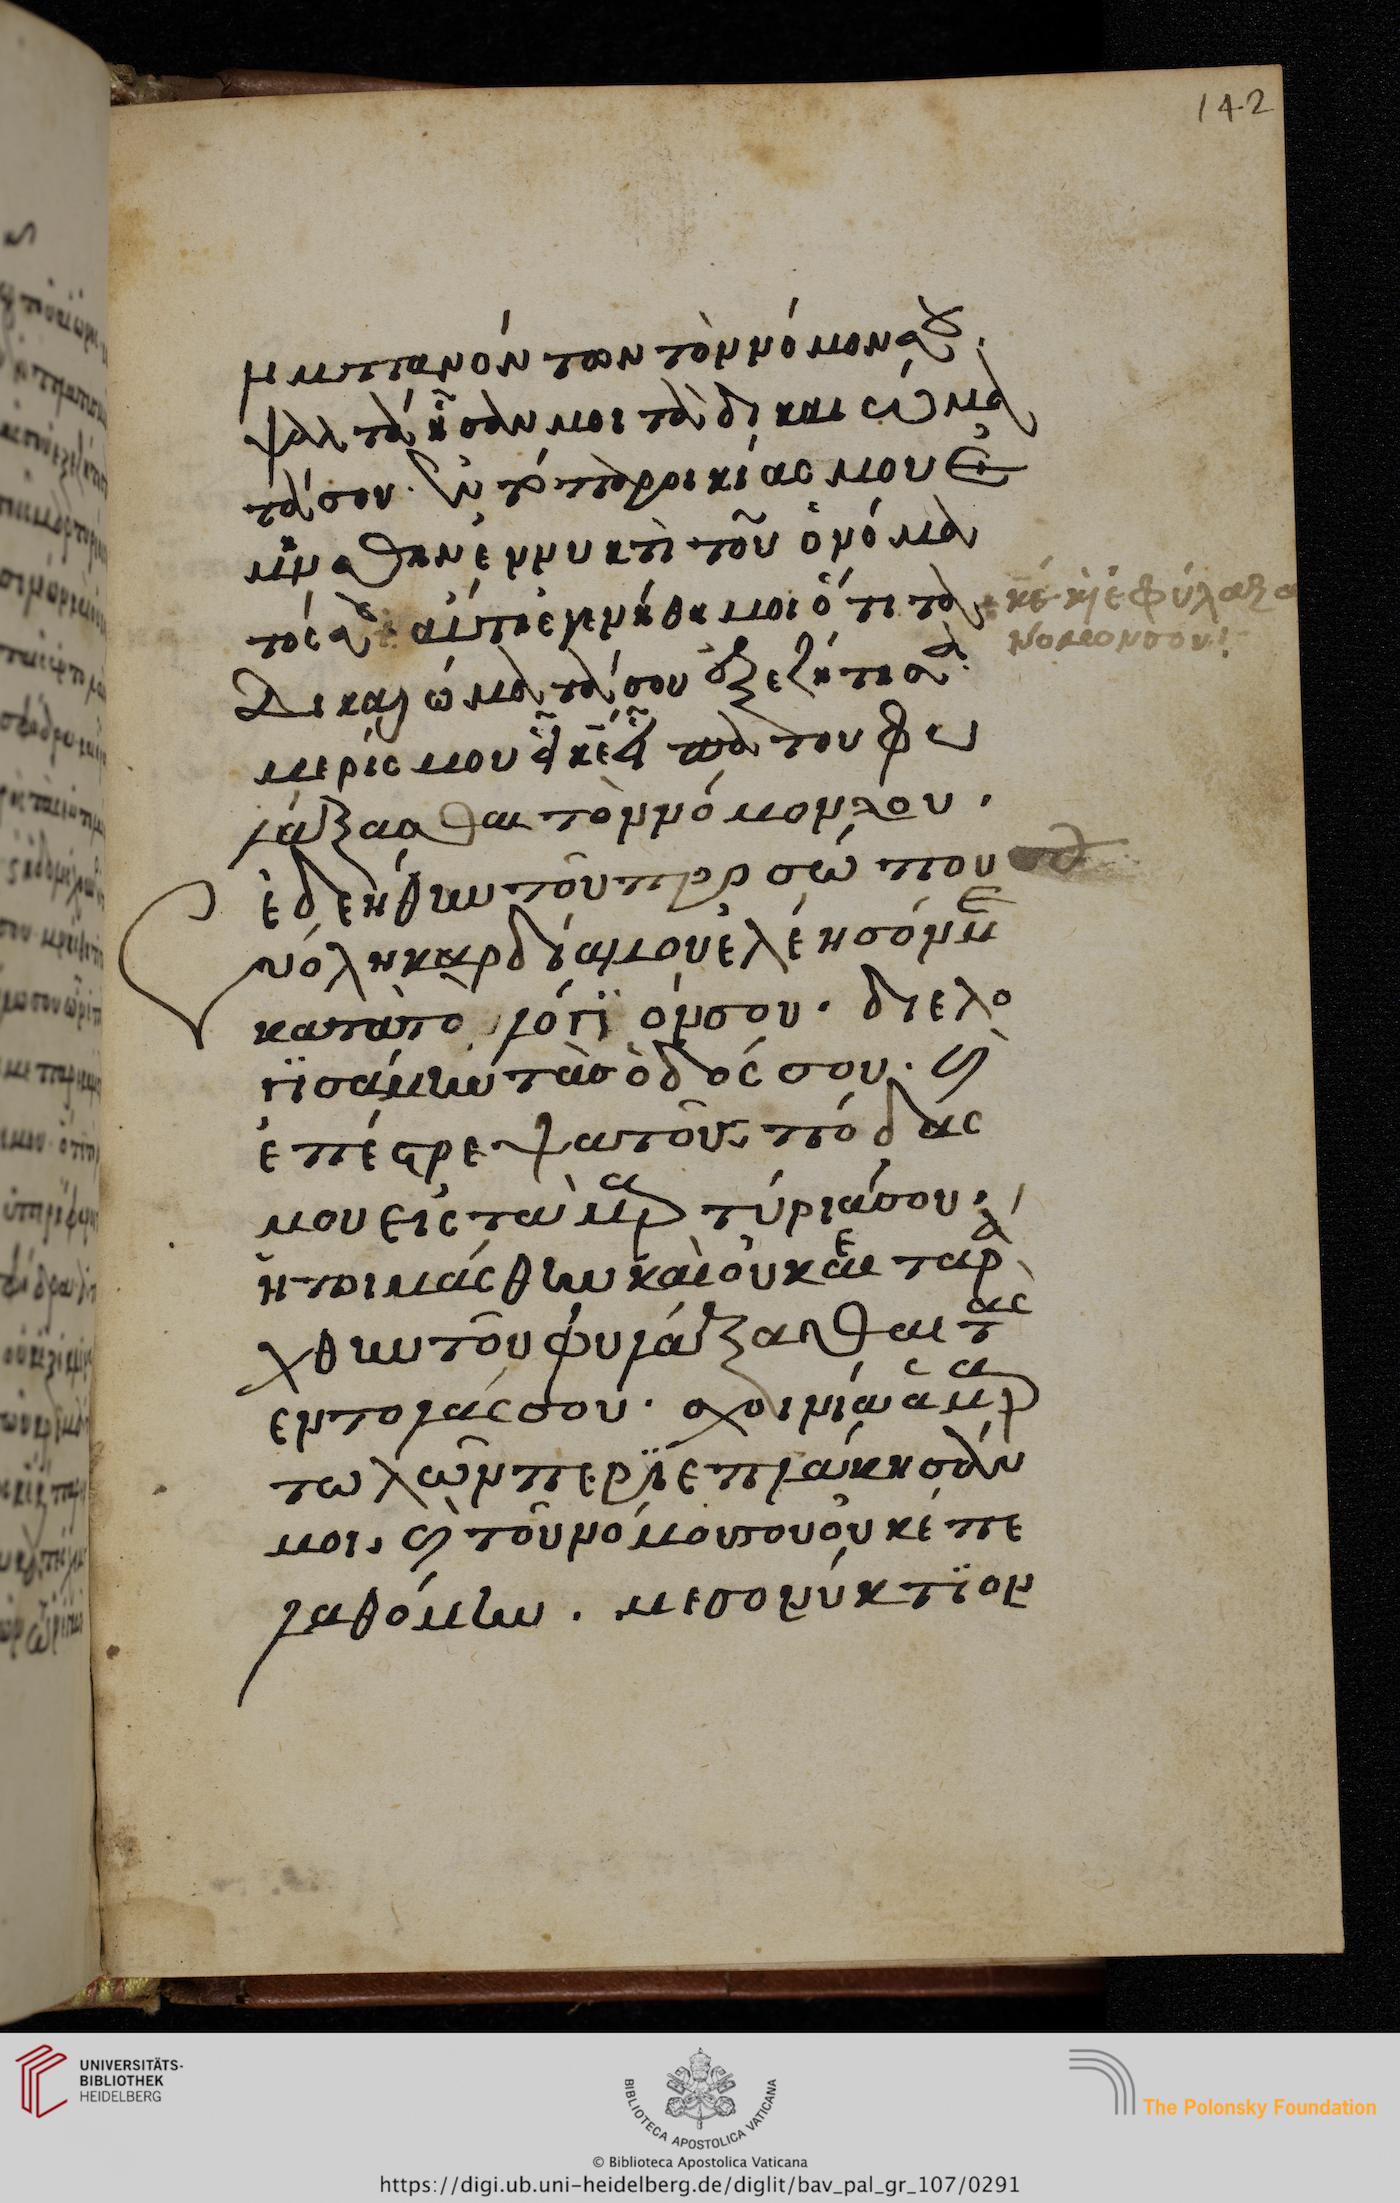 μπανόντων τὸν νόμον σου.
ψαλτὰ ἦσάν μοι τὰ δικαιώμα
τά σου. ἐν τόπω παροικίας μου ἐ
μνήσθην ἐν νυκτὶ τοῦ ὀνόμα
τός σου αὕτη ἐγενήθη μοι ὅτι τὰ
κε κ(αὶ) ἐφύλαξα
νόμον σου:
Δικαιώματά σου ἐξεζήτησα.
μερίς μου εἶ κε εἶπα του φυ
λάξασθαι τὸν νόμον σου.
ἐδεήθην τοῦ προσώπου σου
ἐν ὅλη καρδία μου ἐλέησόν με
κατὰ τὸ λόγϊόν σου. διελο
γϊσάμην τὰς ὁδούς σου. κ(αὶ)
ἐπέστρεψα τοὺς πόδας
μου εἰς τὰ μαρτύριά σου.
ἡτοιμάσθην καὶ οὐκ ἐταρά
χθην τοῦ φυλάξασθαι τὰς
εντολάς σου. σχοινία ἁμαρ
τωλῶν περϊεπλάκησάν
μοι. κ(αὶ) τοῦ νόμου σου οὐκ ἐπε
λαθόμην. μεσονύκτϊον
142
UNIVERSITÄTS-
BIBLIOTHEK
HEIDELBERG
BIBLIOTECA APOSTOLICA VATICANA
The Polonsky Foundation
© Biblioteca Apostolica Vaticana
https://digi.ub.uni-heidelberg.de/diglit/bav_pal_gr_107/0291